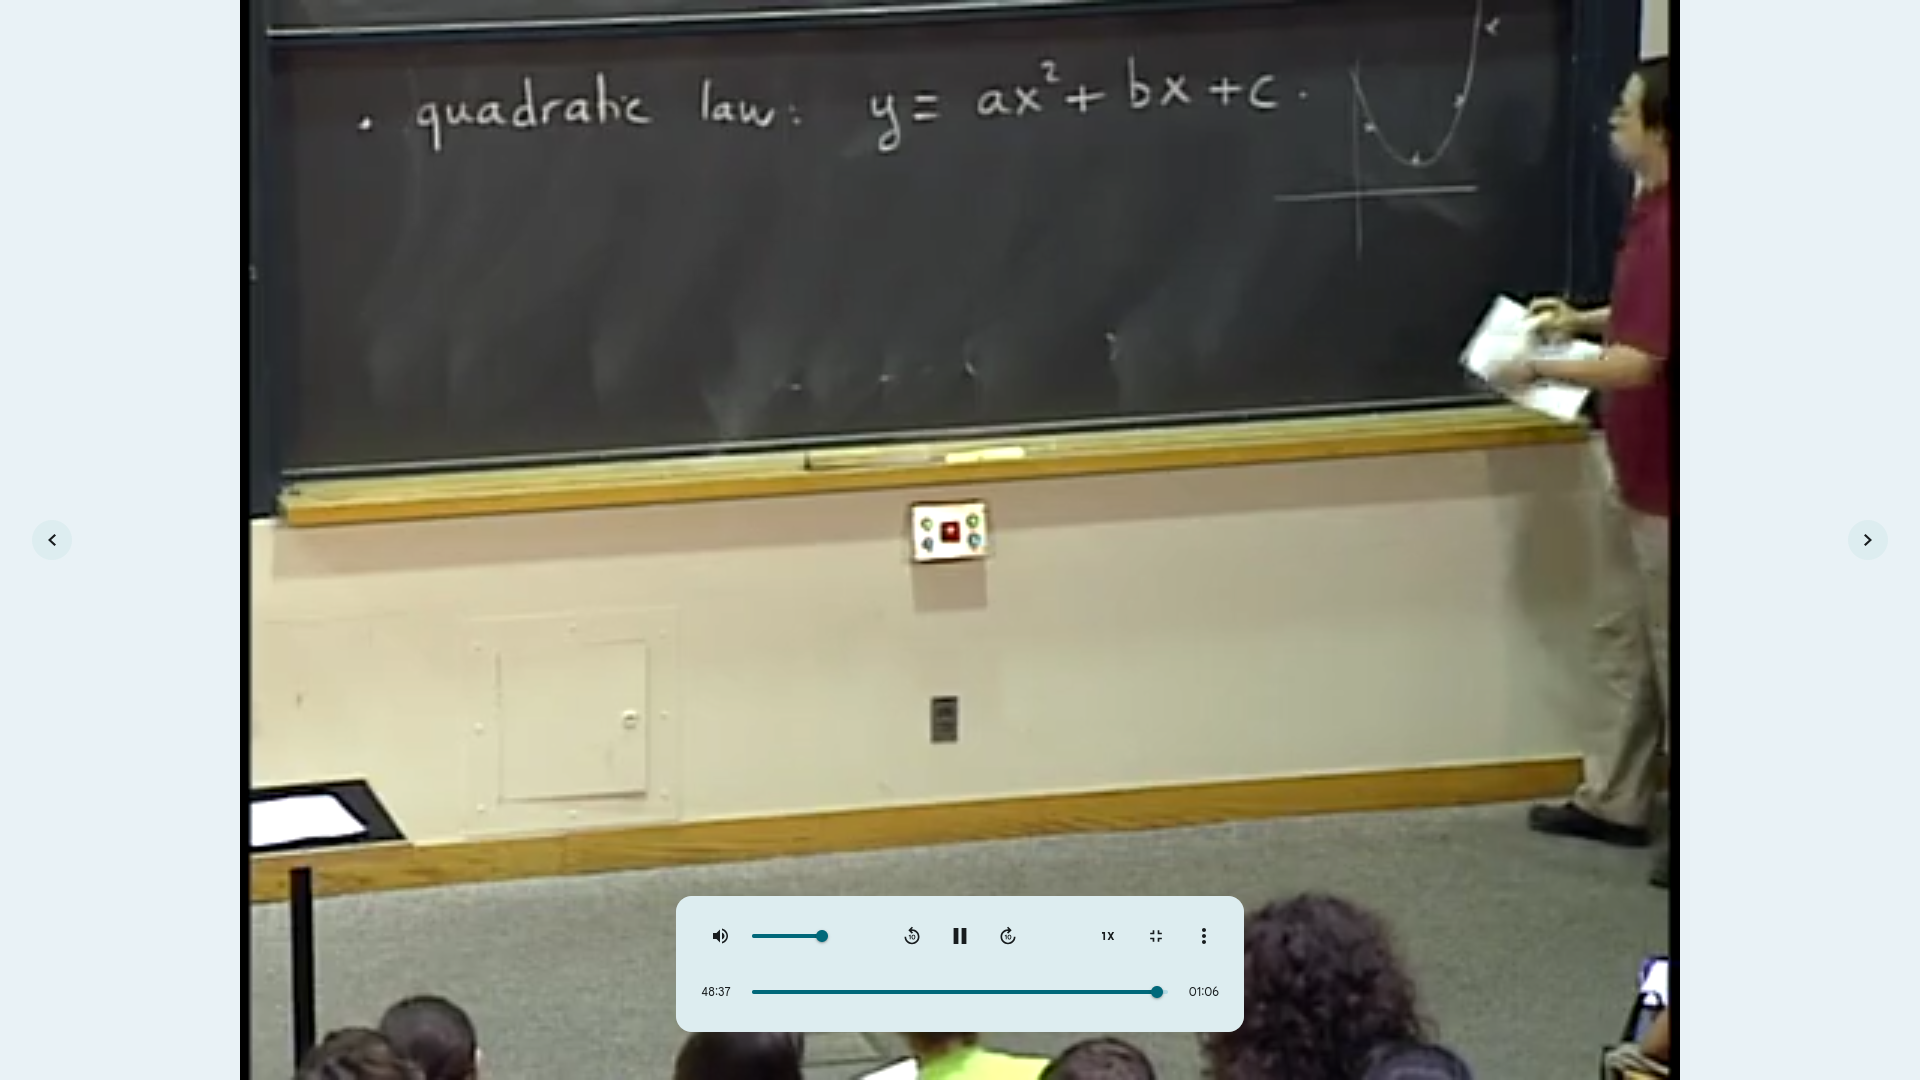 · quadratic law: y = ax² + bx + c.
10
10
1X
48:37
01:06